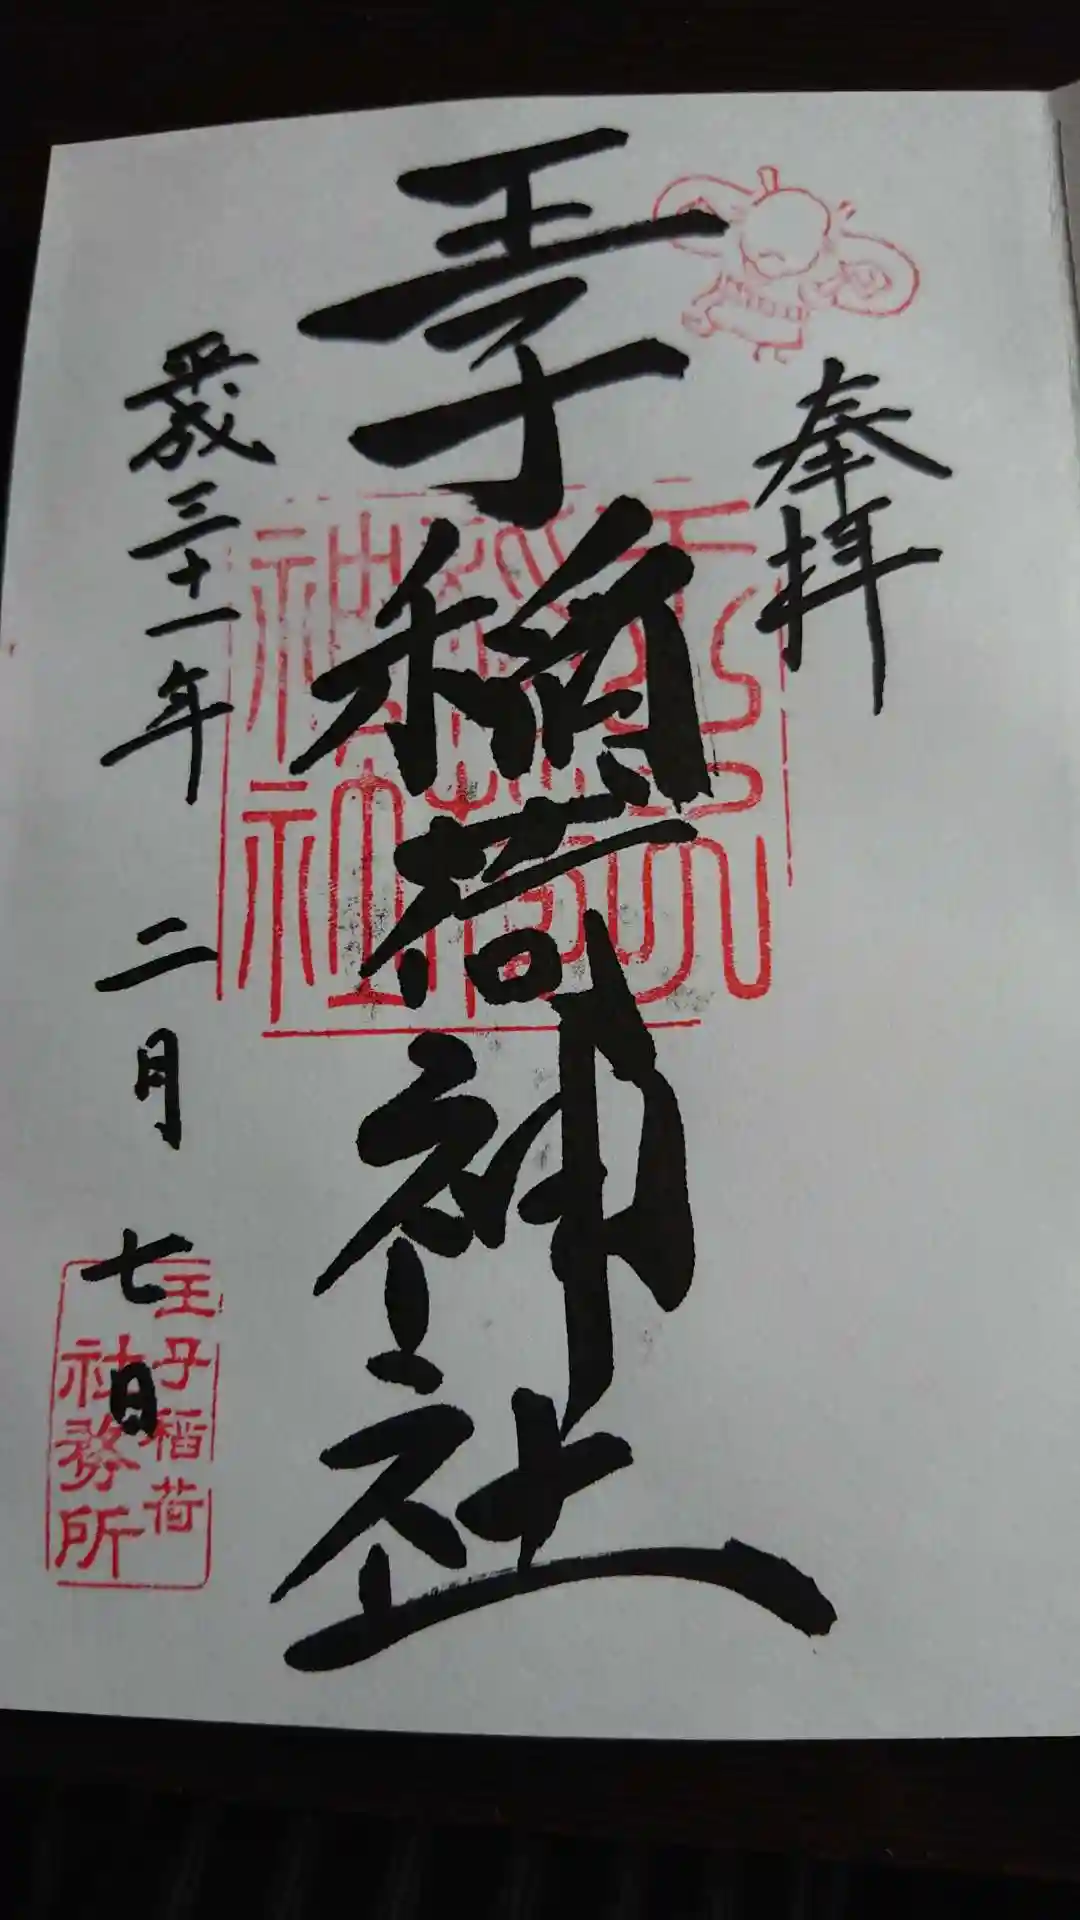 奉拝
王子稲荷神社
平成三十一年 二月 七日
王子稲荷神社
王子稲荷
社務所